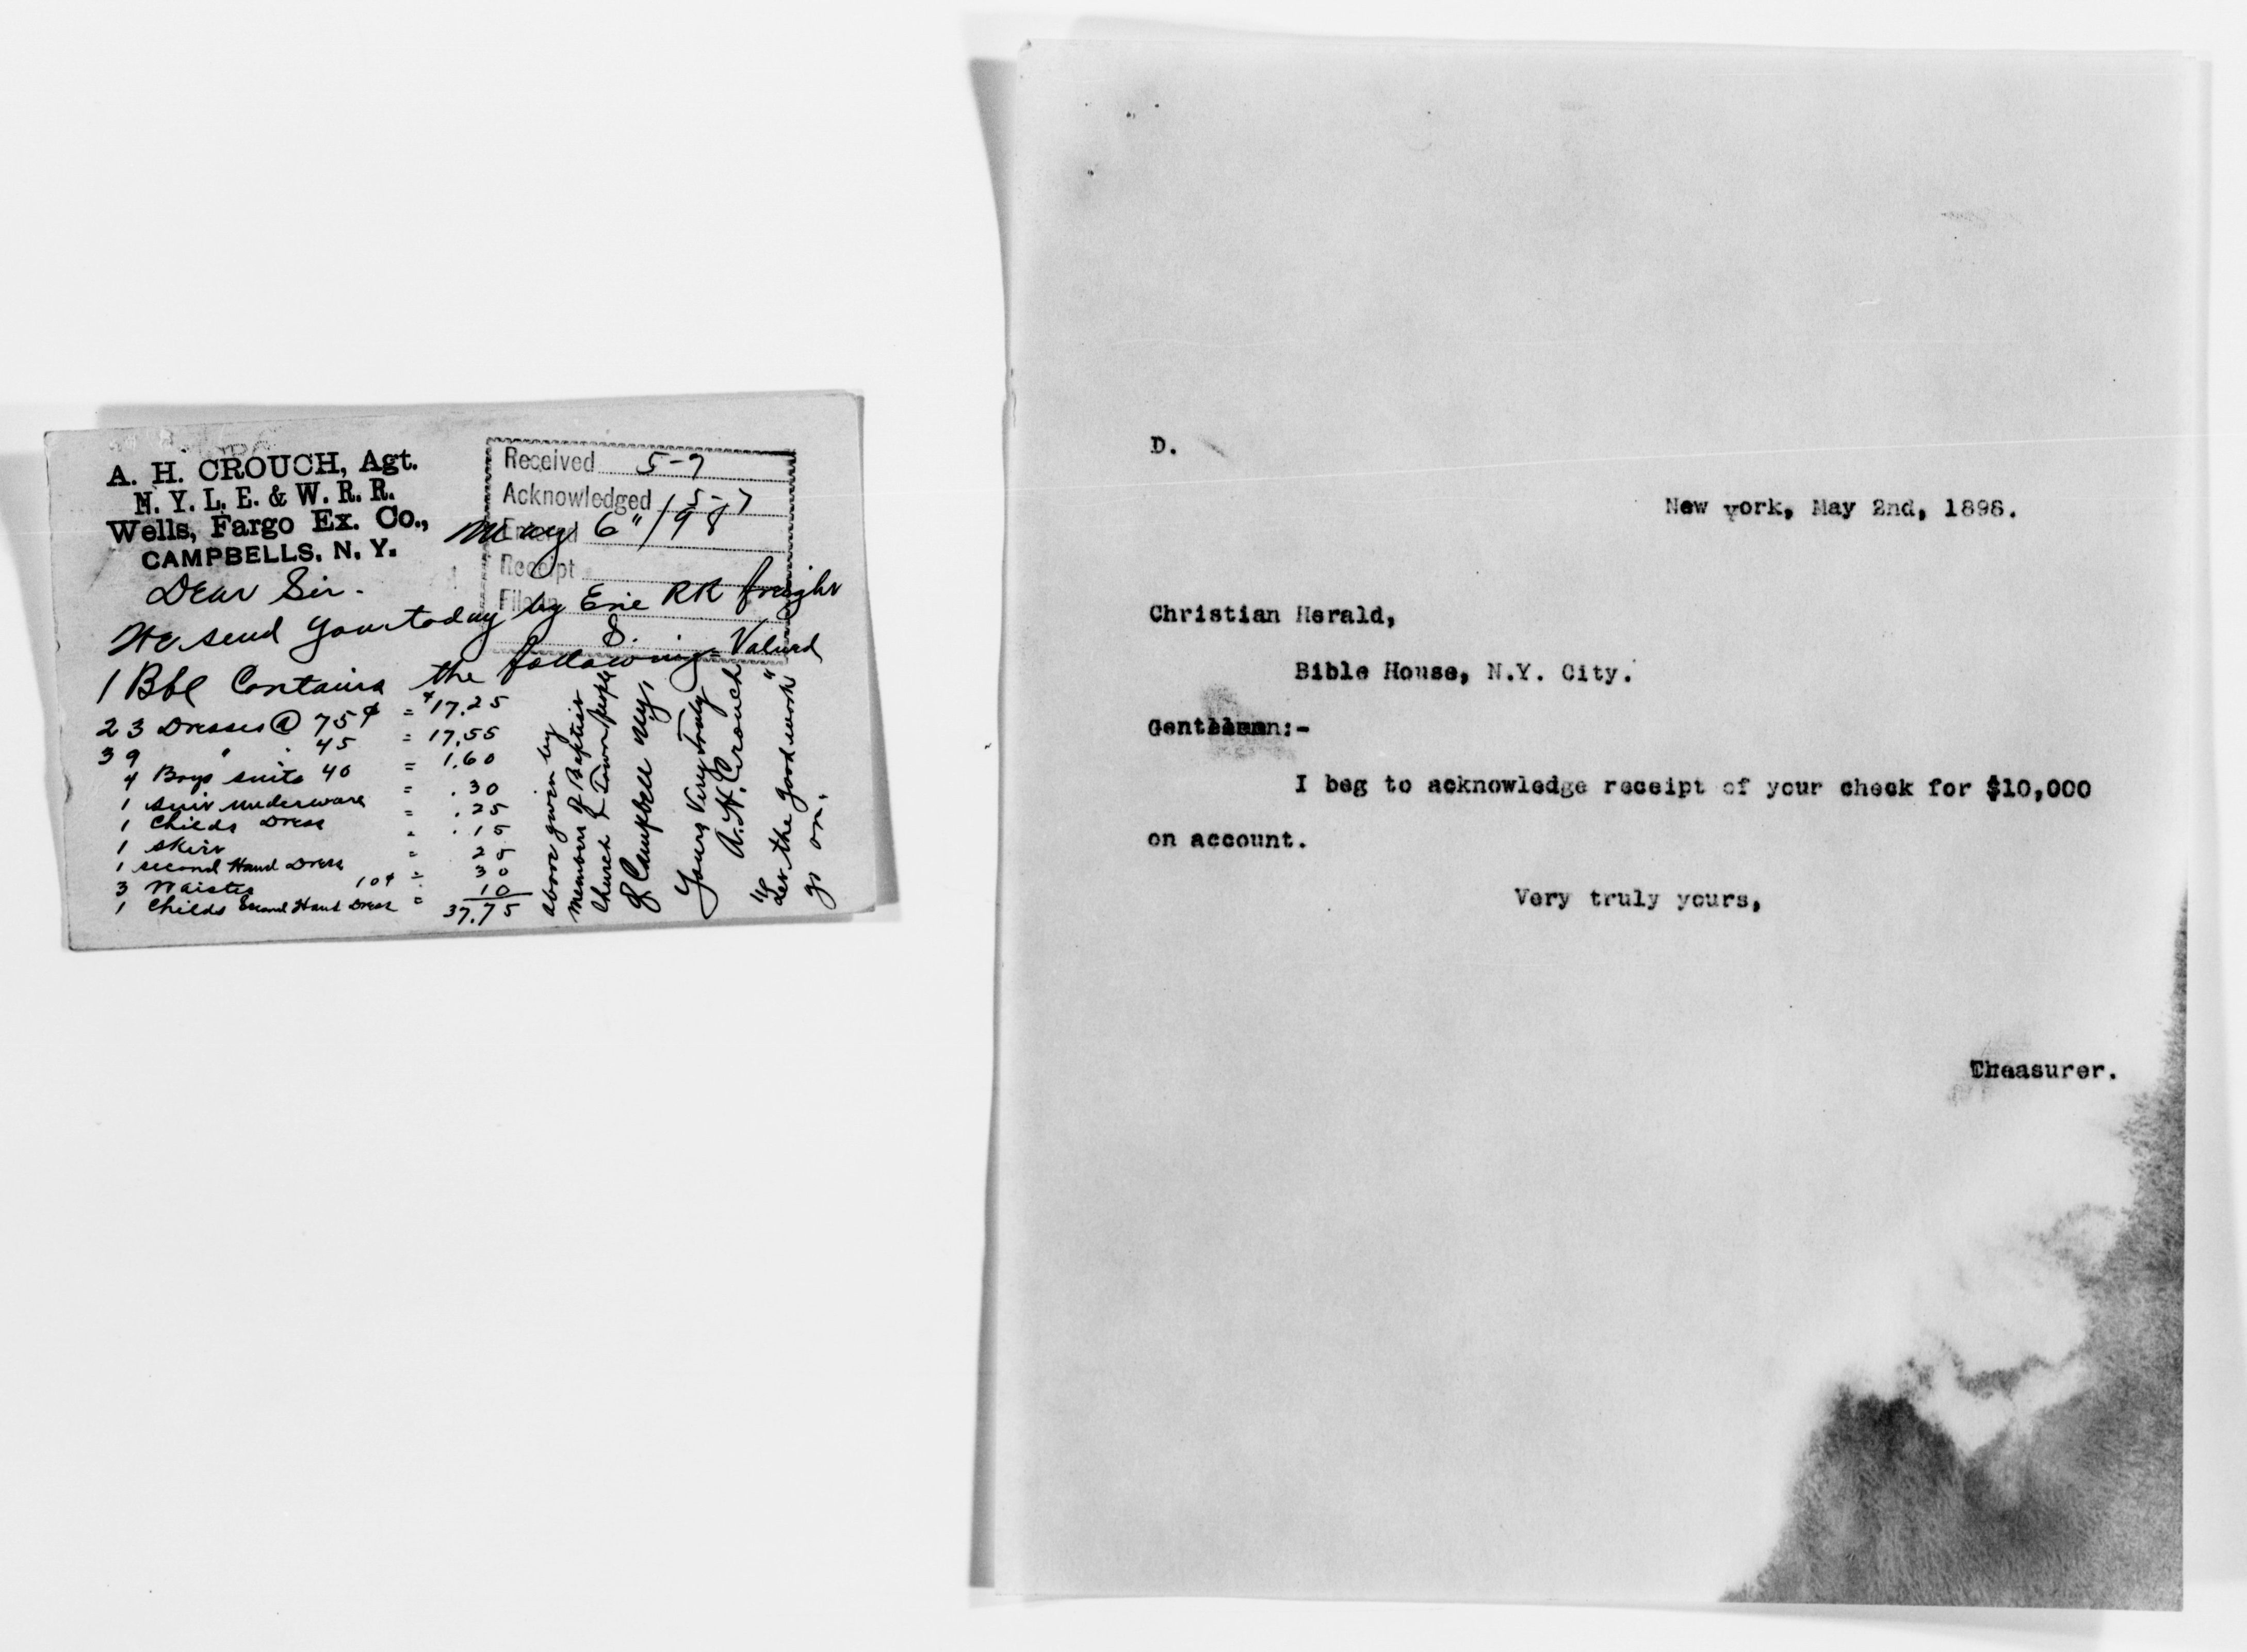 A. H. CROUCH, Agt.
N. Y. L. E. & W. R. R.
Wells, Fargo Ex. Co.,
CAMPBELLS, N. Y.
Received 5-7
Acknowledged 5-7
Entered
Receipt
Filed
May 6" / 98
Dear Sir.
We send you today by Erie RR freight
8.
1 Bbl Contains the following = Valued
23 Dresses @ 75¢ = $17.25
39 " . 45 = 17.55
4 Boys suits 40 = 1.60
1 suit underware = .30
1 Childs Dress = .25
1 skirt = .15
1 second Hand Dress = 25
3 Waistes 10¢ = 30
1 Childs Second Hand Dress = 10
37.75
above given by
members of Baptist
Church & Town people
of Campbell NY,
Yours Very Truly
A. H. Crouch
"Let the good work"
go on.
D.
New york, May 2nd, 1898.
Christian Herald,
Bible House, N.Y. City.
Gentleman:-
I beg to acknowledge receipt of your check for $10,000
on account.
Very truly yours,
Theasurer.